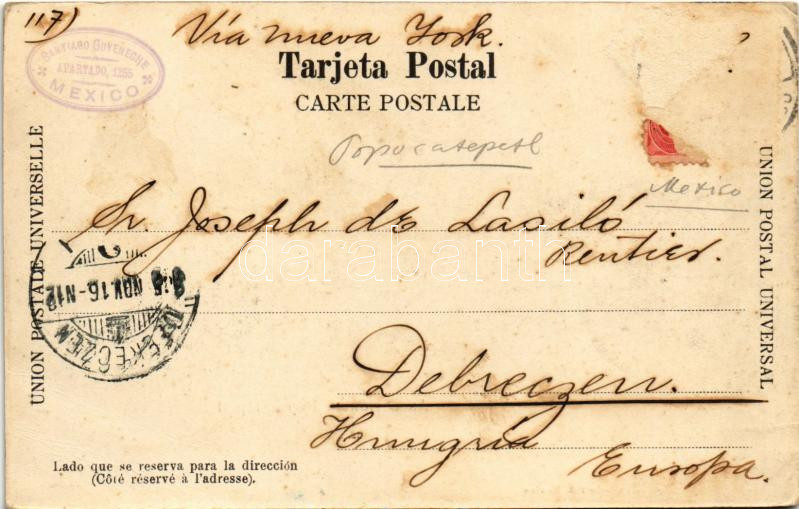 117)
Vía nueva York.
SANTIAGO GOYENECHE
APARTADO, 1255
MEXICO
Tarjeta Postal
CARTE POSTALE
Popocatepetl
Mexico
Sr. Joseph de László
Rentier.
darabanth
UNION POSTALE UNIVERSELLE
UNION POSTAL UNIVERSAL
NOV. 16-N12
DEBRECZEN
Debreczen.
Hungría
Europa.
Lado que se reserva para la dirección
(Côté réservé à l'adresse).